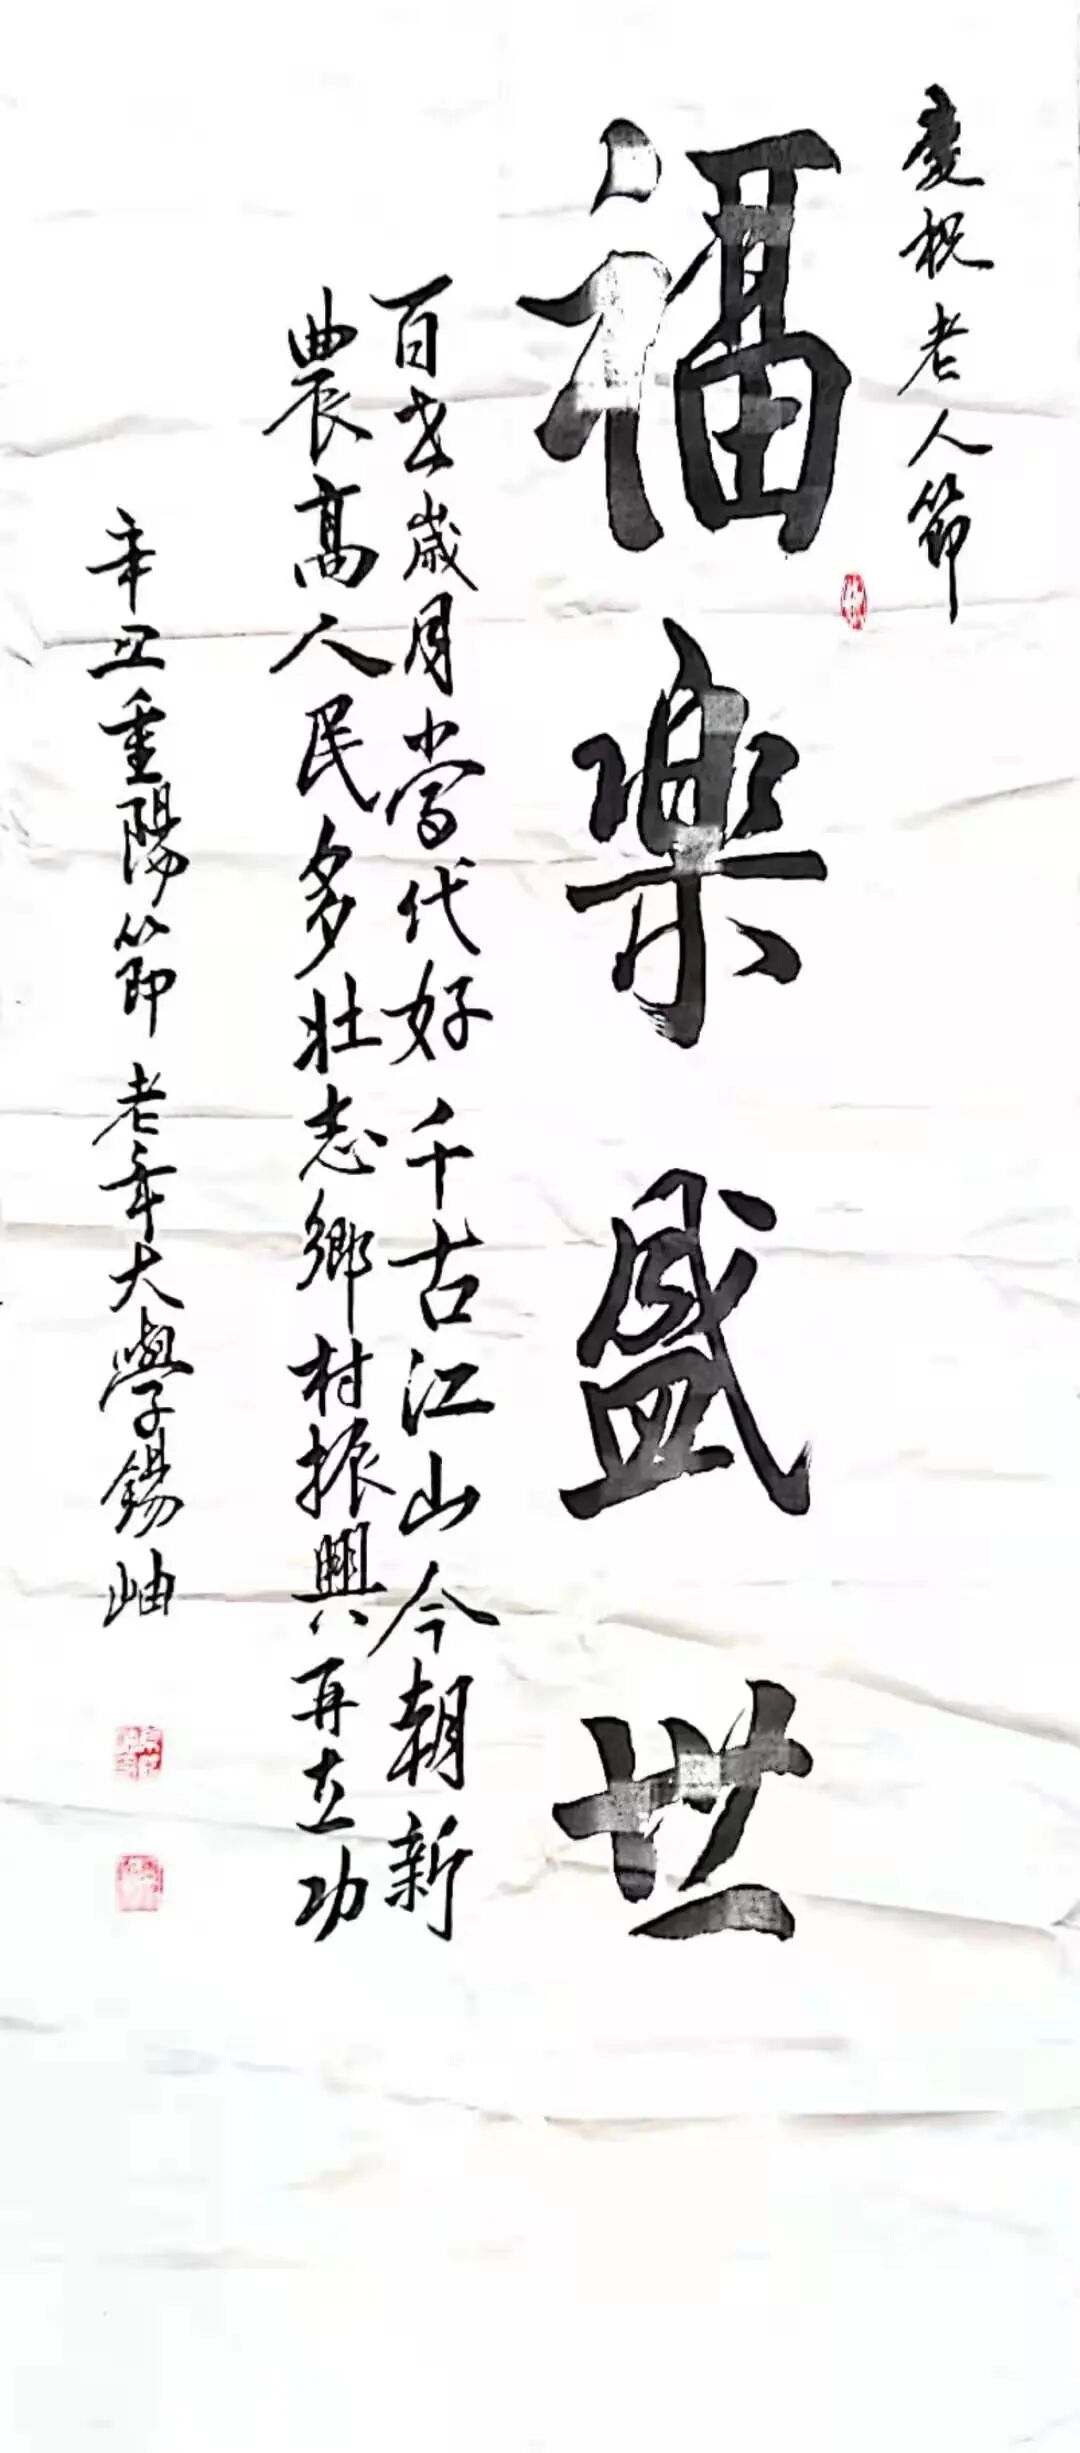 慶祝老人節
福樂盛世
百世歲月當代好千古江山今朝新
農高人民多壯志鄉村振興再立功
辛丑重陽節老年大學錫岫